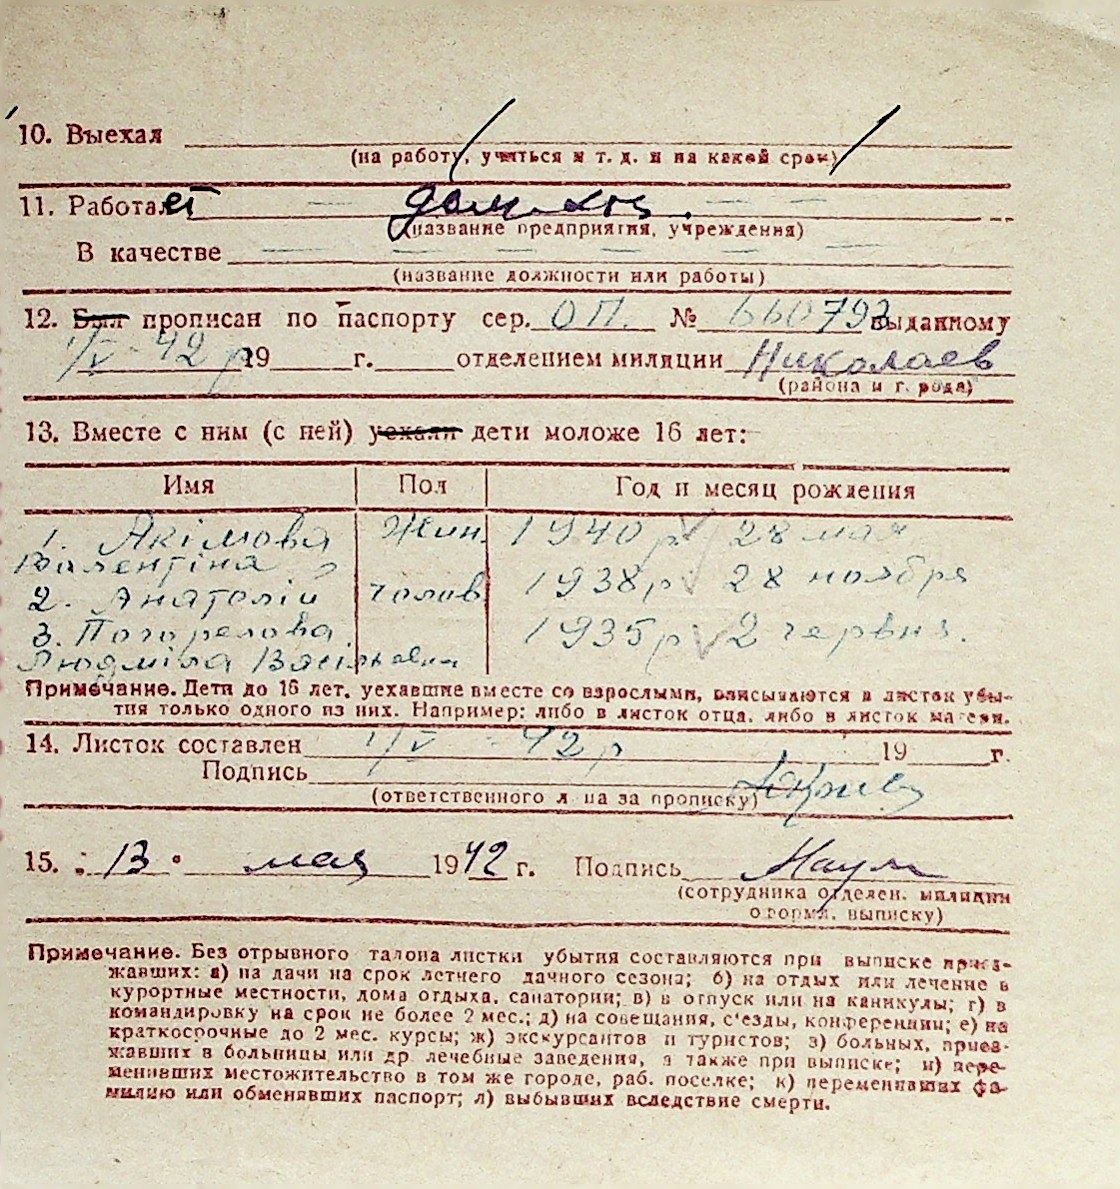 10. Выехал
(на работу, учиться и т. д. и на какой срок)
11. Работает
(название предприятия, учреждения)
В качестве
(название должности или работы)
12. Был прописан по паспорту сер. ОП. № 660792 выданному
1/V - 42 р 19 г. отделением милиции Николаев
(района и города)
13. Вместе с ним (с ней) уехали дети моложе 16 лет:
Имя Пол Год и месяц рождения
1. Якімова Жин. 1940 р 28 мая
Валентіна
2. Анатолій чолов 1938 р 28 ноября
3. Погорелова 1935 р 2 червня.
Людміла Васільевна
Примечание. Дети до 16 лет, уехавшие вместе со взрослыми, вписываются в листок убы-
тия только одного из них. Например: либо в листок отца, либо в листок матери.
14. Листок составлен 1/V - 42 р 19 г.
Подпись
(ответственного л ца за прописку)
15. 13 мая 1942 г. Подпись Наум
(сотрудника отделен. милиции
оформл. выписку)
Примечание. Без отрывного талона листки убытия составляются при выписке приез-
жавших: а) на дачи на срок летнего дачного сезона; б) на отдых или лечение в
курортные местности, дома отдыха, санатории; в) в отпуск или на каникулы; г) в
командировку на срок не более 2 мес.; д) на совещания, с'езды, конференции; е) на
краткосрочные до 2 мес. курсы; ж) экскурсантов и туристов; з) больных, приез-
жавших в больницы или др лечебные заведения, а также при выписке; и) пере-
менивших местожительство в том же городе, раб. поселке; к) переменивших фа-
милию или обменявших паспорт; л) выбывших вследствие смерти.